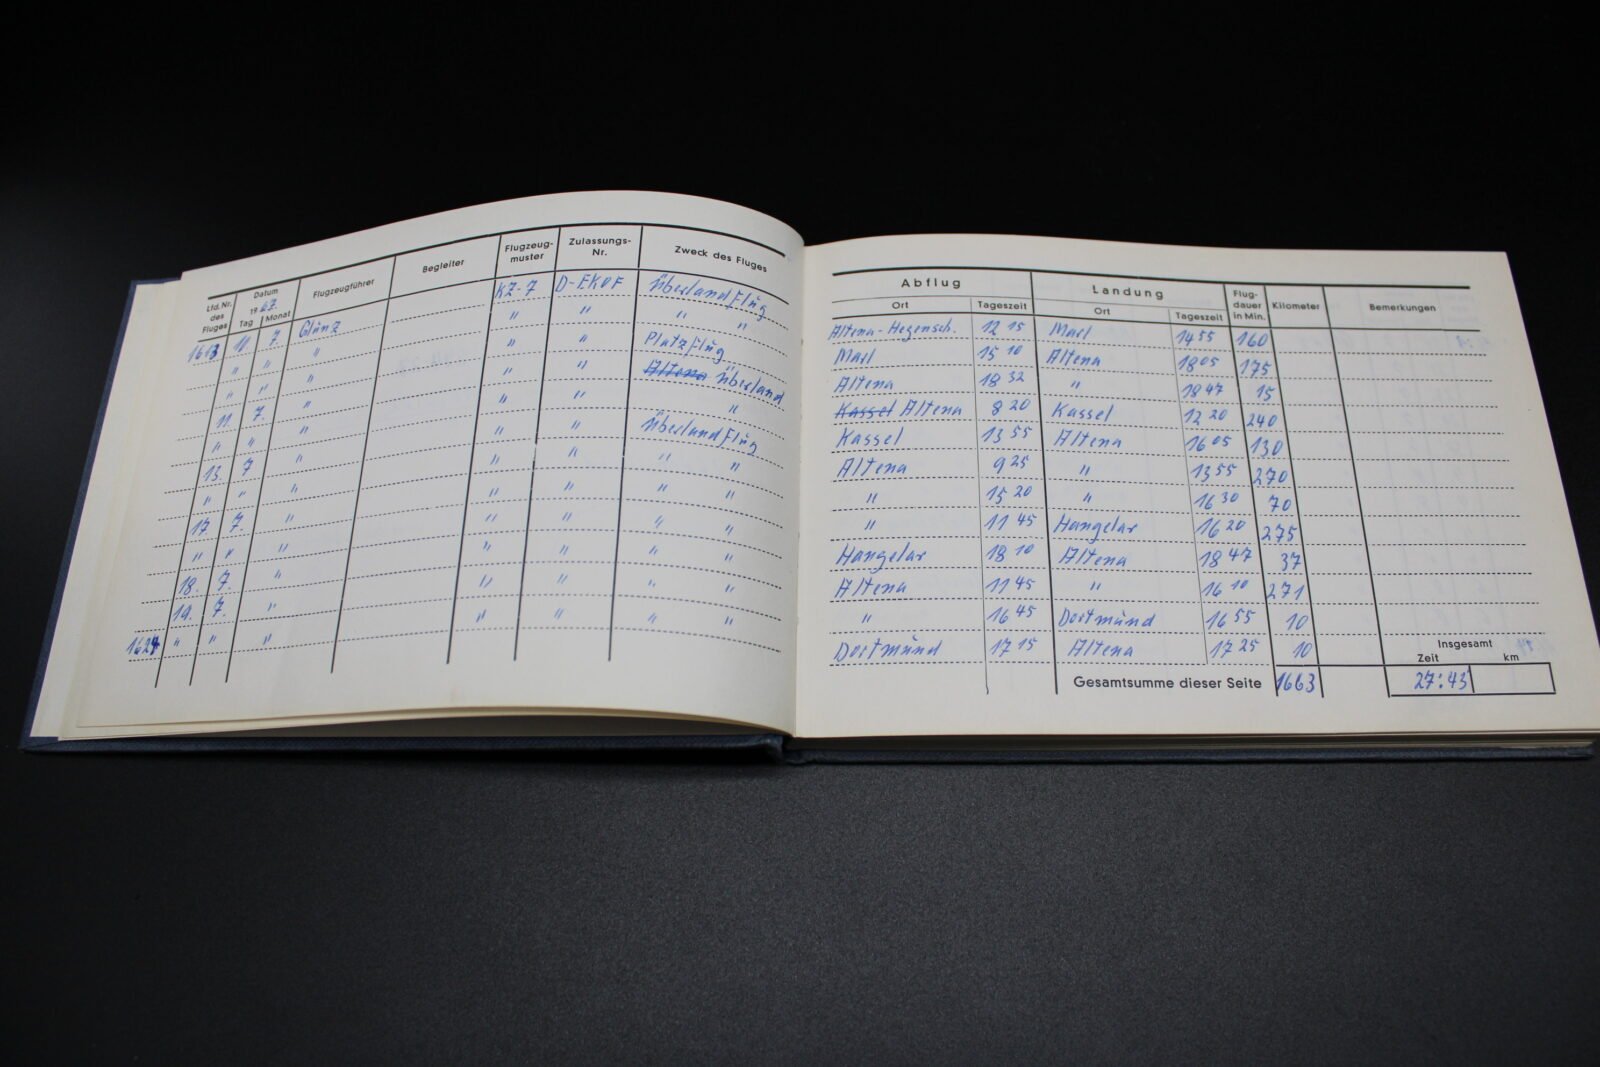 Lfd. Nr. des Fluges | Datum 19 67. Tag | Monat | Flugzeugführer | Begleiter | Flugzeug-muster | Zulassungs-Nr. | Zweck des Fluges
1613 11. 7. Glünz KZ-7 D-EKOF Überlandflug
" " " " " " "
" " " " " Platzflug
11. 7. " " " Altena Überland
" " " " " "
13. 7 " " " Überlandflug
" " " " " " "
17. 7. " " " " "
" " " " " " "
18. 7. " " " " "
19. 7. " " " " "
1624 " " " " " " "
Abflug | Landung | Flug-dauer in Min. | Kilometer | Bemerkungen
Ort | Tageszeit | Ort | Tageszeit
Altena-Hegensch. 12 15 Marl 14 55 160
Marl 15 10 Altena 18 05 175
Altena 18 32 " 18 47 15
Kassel Altena 8 20 Kassel 12 20 240
Kassel 13 55 Altena 16 05 130
Altena 9 25 " 13 55 270
" 15 20 " 16 30 70
" 11 45 Hangelar 16 20 275
Hangelar 18 10 Altena 18 47 37
Altena 11 45 " 16 10 271
" 16 45 Dortmund 16 55 10
Dortmund 17 15 Altena 17 25 10
Insgesamt
Zeit km
Gesamtsumme dieser Seite 1663 27:43